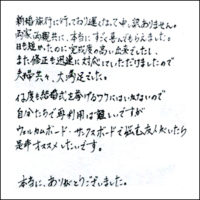 新婚旅行に行っており遅くなって申し訳ありません。
両家両親共に、本当にすごく喜んでもらえました。
日も短かったのに完成度の高い出来でしたし、
また修正も迅速に対応していただけましたので
夫婦共々、大満足でした。
何度も結婚式を挙げるワケにはいかないので
自分たちで再利用は難しいですが
ウェルカムボード・サンクスボードで悩む友人がいたら
是非オススメしたいです。
本当に、ありがとうございました。